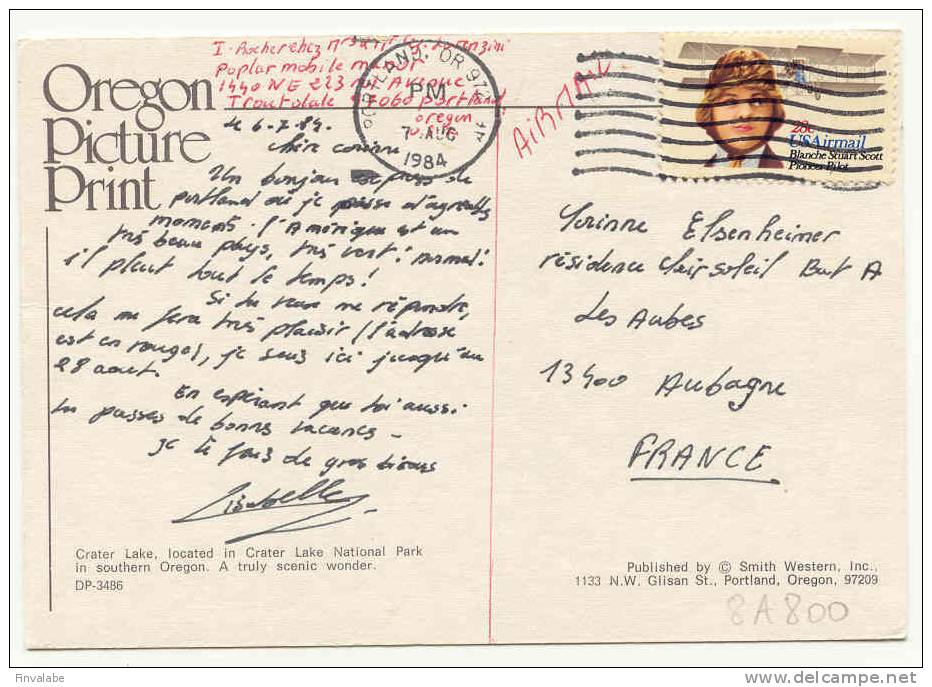 Oregon
Picture
Print
Poplar mobile manor
1440 NE 223 rd Avenue
Troutdale 97060 Portland
oregon
PORTLAND, OR 972
PM
7 AUG
1984
AIRMAIL
28c
USAirmail
Blanche Stuart Scott
Pioneer Pilot
le 6.7.84.
Chère corinne
Un bonjour depuis de
portland où je passe d'agréables
moments. l'Amérique est un
très beau pays, très vert! normal!
il pleut tout le temps!
Si tu veux me répondre,
cela me fera très plaisir (l'adresse
est en rouge), je suis ici jusqu'au
28 aout.
En espérant que toi aussi
tu passes de bonnes vacances -
je te fais de gros bisous
Isabelle
Corinne Elsenheimer
résidence Clair soleil Bat A
Les Aubes
13400 Aubagne
FRANCE
Crater Lake, located in Crater Lake National Park
in southern Oregon. A truly scenic wonder.
DP-3486
Published by © Smith Western, Inc.,
1133 N.W. Glisan St., Portland, Oregon, 97209
8A800
Finvalabe
delcampe.net